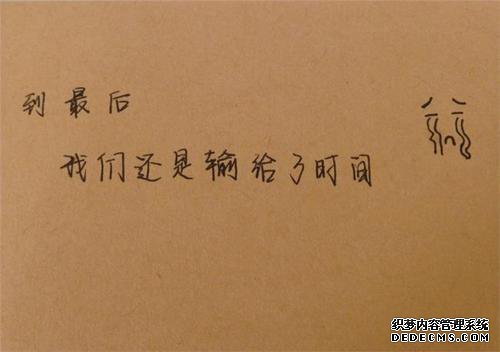 到最后
我们还是输给了时间
织梦内容管理系统
DEDECMS.COM